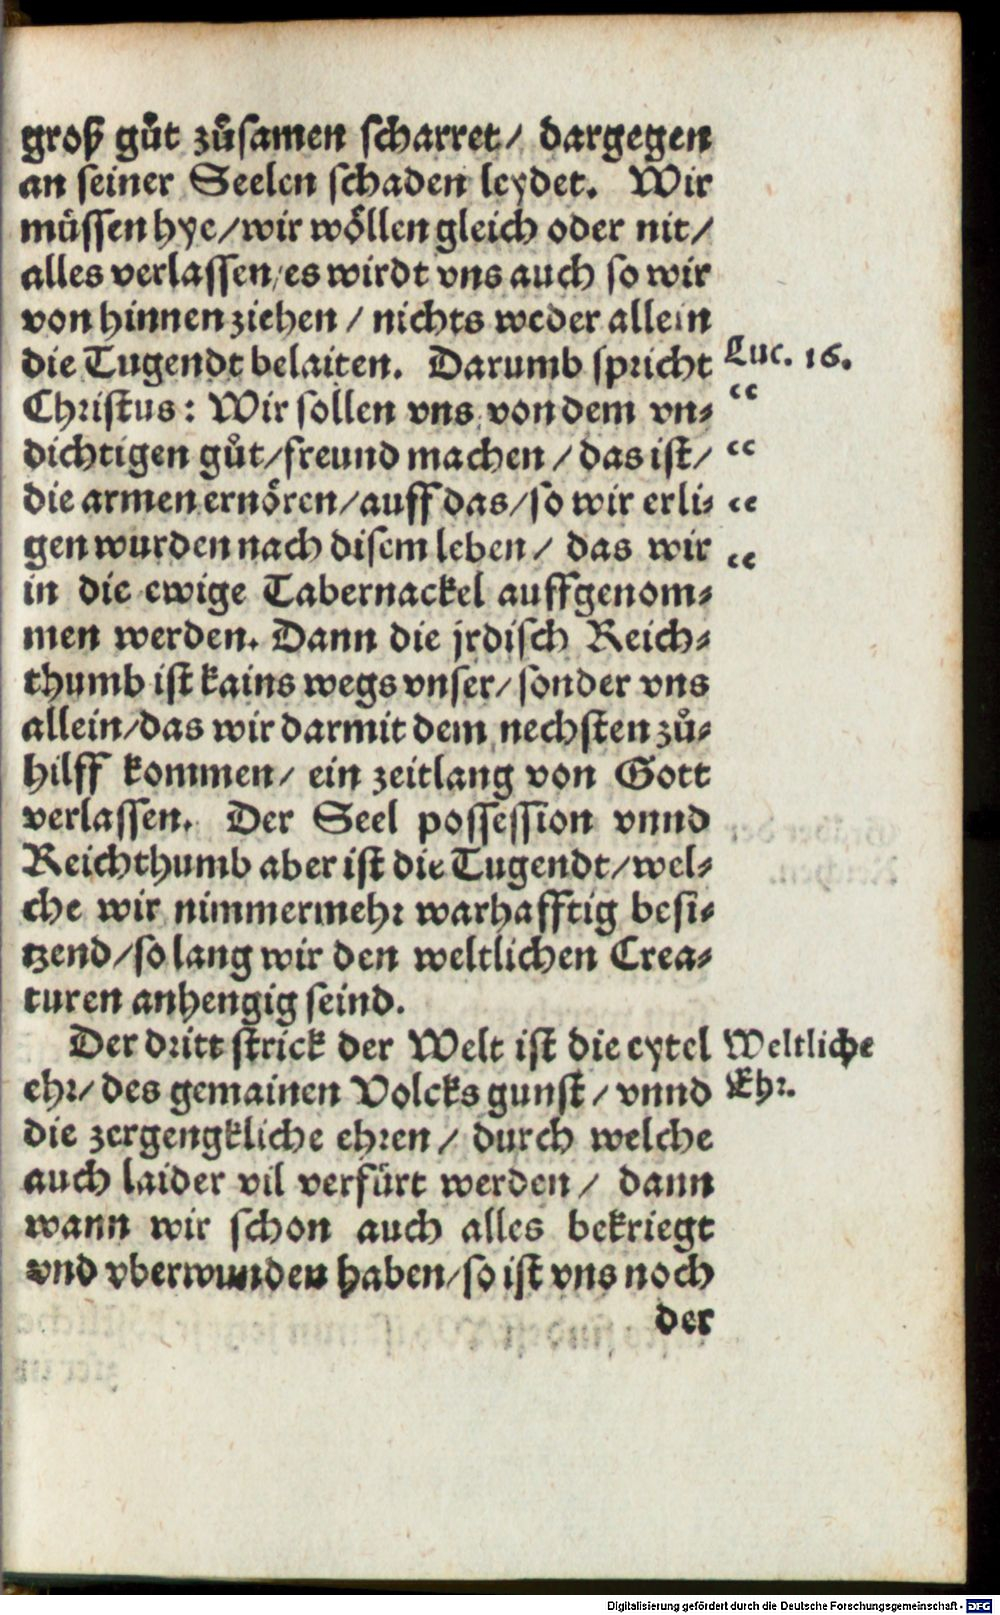 groß gůt zůsamen scharret/ dargegen
an seiner Seelen schaden leydet. Wir
müssen hye/wir wöllen gleich oder nit/
alles verlassen/es wirdt vns auch so wir
von hinnen ziehen / nichts weder allein
die Tugendt belaiten. Darumb spricht
Luc. 16.
Christus: Wir sollen vns von dem vn⸗
dichtigen gůt/freund machen / das ist/
die armen ernören/auff das/so wir erli⸗
gen wurden nach disem leben / das wir
in die ewige Tabernackel auffgenom⸗
men werden. Dann die jrdisch Reich⸗
thumb ist kains wegs vnser/ sonder vns
allein/das wir darmit dem nechsten zů⸗
hilff kommen/ ein zeitlang von Gott
verlassen. Der Seel possession vnnd
Reichthumb aber ist die Tugendt/wel⸗
che wir nimmermehr warhafftig besi⸗
tzend/so lang wir den weltlichen Crea⸗
turen anhengig seind.
Der dritt strick der Welt ist die eytel
Weltliche
Ehr.
ehr/ des gemainen Volcks gunst / vnnd
die zergengkliche ehren / durch welche
auch laider vil verfürt werden / dann
wann wir schon auch alles bekriegt
vnd vberwunden haben/so ist vns noch
der
Digitalisierung gefördert durch die Deutsche Forschungsgemeinschaft - DFG